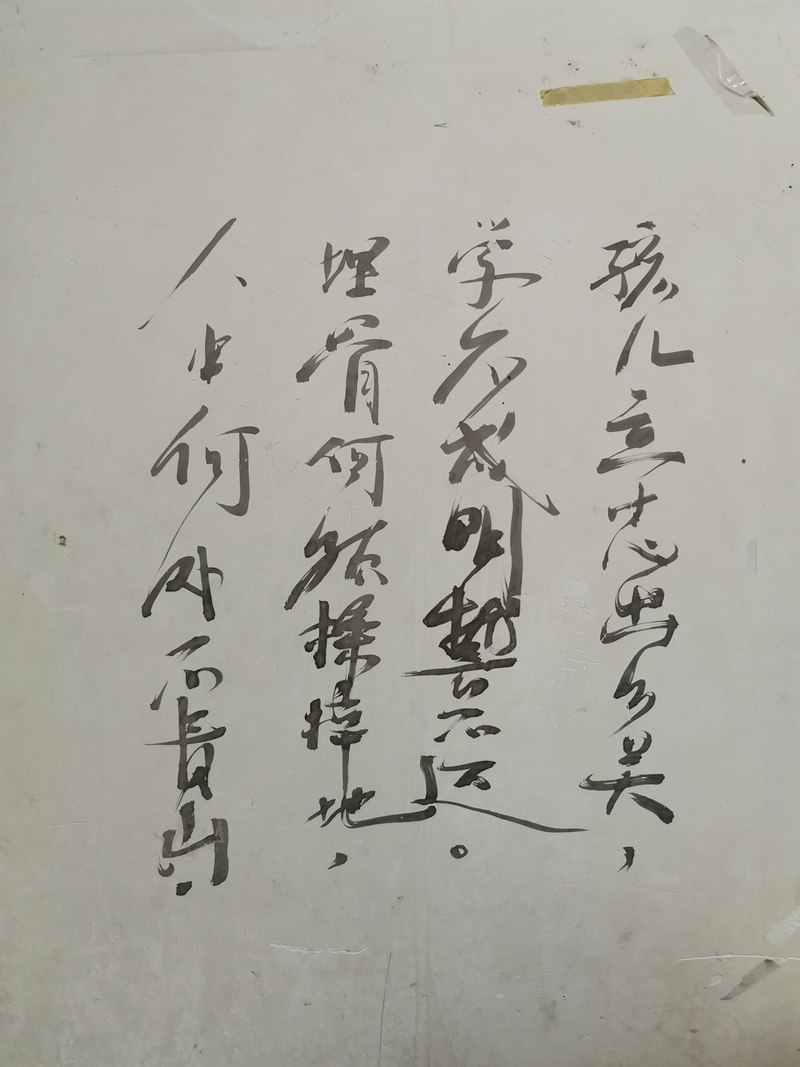 孩儿立志出乡关，
学不成明誓不还。
埋骨何须操梓地，
人生何处不青山.